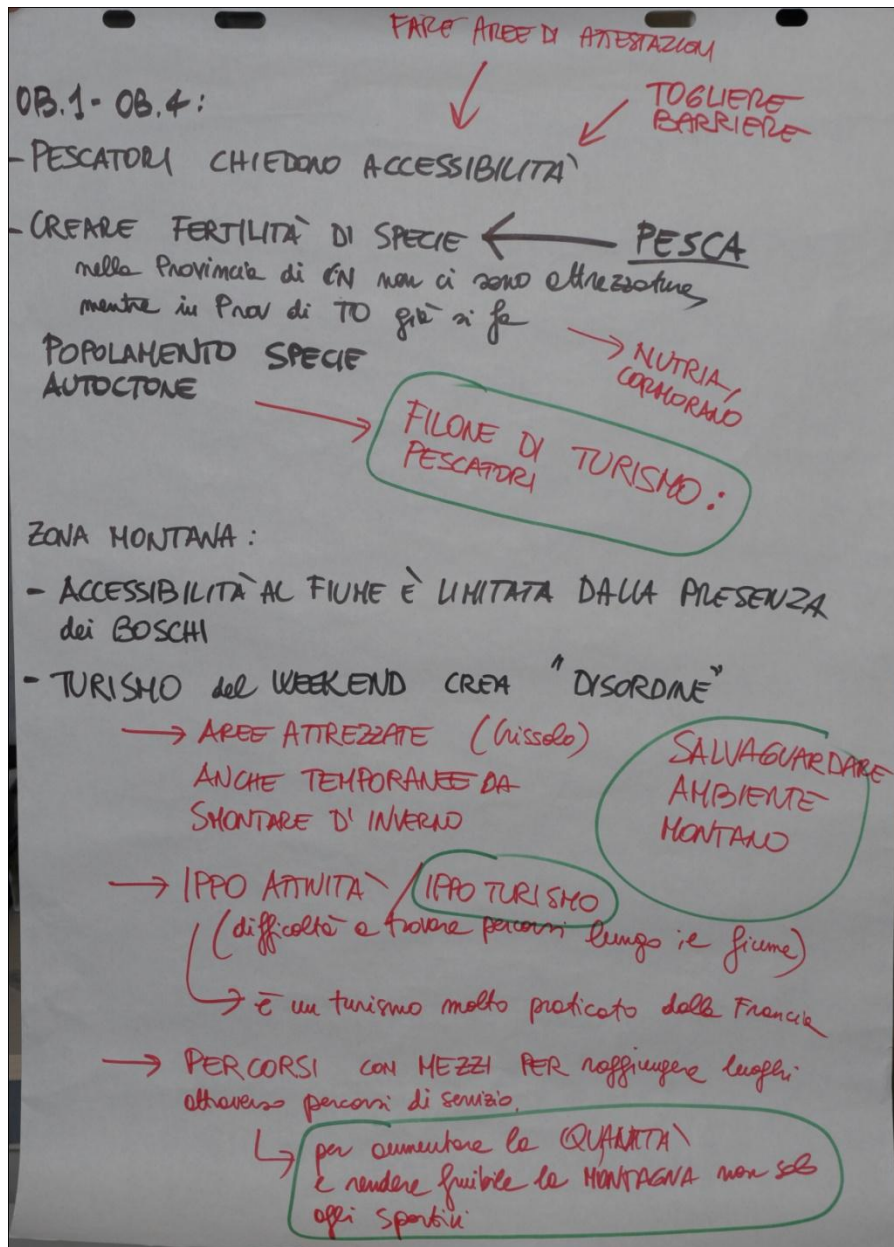 FARE AREE DI ATTESTAZIONI
TOGLIERE
BARRIERE
OB.1- OB.4:
- PESCATORI CHIEDONO ACCESSIBILITÀ
- CREARE FERTILITÀ DI SPECIE
PESCA
nella Provincia di CN non ci sono attrezzature
mentre in Prov di TO già si fa
NUTRIA,
CORMORANO
POPOLAMENTO SPECIE
AUTOCTONE
FILONE DI TURISMO:
PESCATORI
ZONA MONTANA:
- ACCESSIBILITÀ AL FIUME È LIMITATA DALLA PRESENZA
dei BOSCHI
- TURISMO del WEEKEND CREA "DISORDINE"
AREE ATTREZZATE (Crissolo)
ANCHE TEMPORANEE DA
SMONTARE D'INVERNO
SALVAGUARDARE
AMBIENTE
MONTANO
IPPO ATTIVITÀ / IPPO TURISMO
(difficoltà a trovare percorsi lungo il fiume)
è un turismo molto praticato dalla Francia
PERCORSI CON MEZZI PER raggiungere luoghi
attraverso percorsi di servizio.
per aumentare la
e rendere fruibile la MONTAGNA non solo
agli sportivi